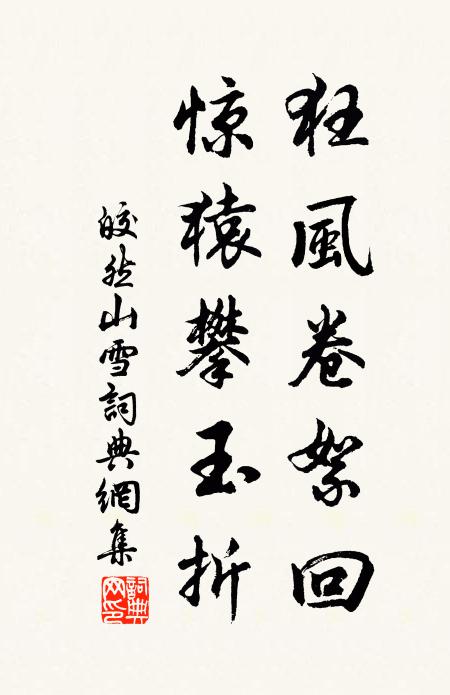 狂風卷絮回
惊猿攀玉折
皎然山雪詞典網集
詞典网印